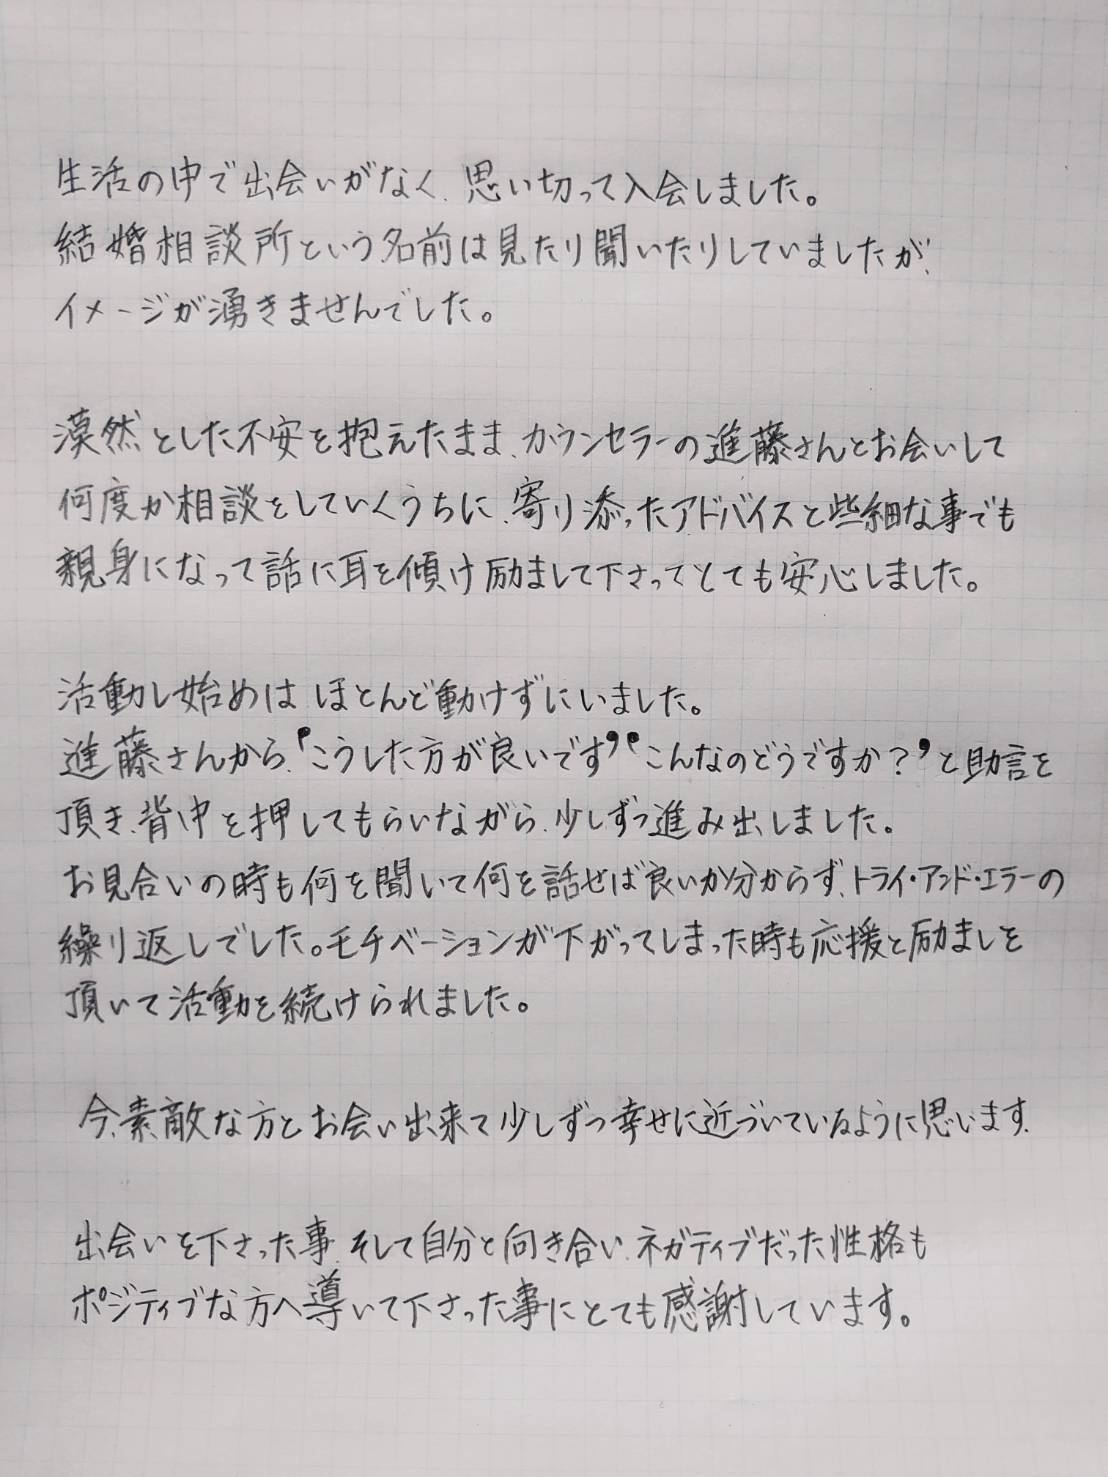 生活の中で出会いがなく、思い切って入会しました。
結婚相談所という名前は見たり聞いたりしていましたが、
イメージが湧きませんでした。
漠然とした不安を抱えたまま、カウンセラーの進藤さんとお会いして
何度か相談をしていくうちに、寄り添ったアドバイスと些細な事でも
親身になって話に耳を傾け励まして下さってとても安心しました。
活動し始めは ほとんど動けずにいました。
進藤さんから、‘こうした方が良いです’‘こんなのどうですか？’と助言を
頂き、背中を押してもらいながら、少しずつ進み出しました。
お見合いの時も何を聞いて何を話せば良いか分からず、トライ・アンド・エラーの
繰り返しでした。モチベーションが下がってしまった時も応援と励ましを
頂いて活動を続けられました。
今、素敵な方とお会い出来て少しずつ幸せに近づいているように思います。
出会いを下さった事、そして自分と向き合い、ネガティブだった性格も
ポジティブな方へ導いて下さった事にとても感謝しています。